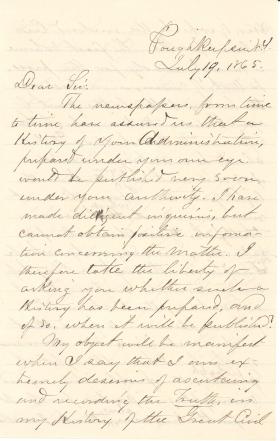 Poughkeepsie N.Y.
July 19, 1865.
Dear Sir:
The newspapers, from time
to time, have assured us that a
History of your Administration,
prepared under your own eye
would be published very soon
under your authority. I have
made diligent inquiries, but
cannot obtain positive informa-
tion concerning the matter. I
therefore take the liberty of
asking you whether such a
History has been prepared, and
if so, when it will be published?
My object will be manifest
when I say that I am ex-
tremely desirous of ascertaining
and recording the Truth, in
my History of the Great Civil